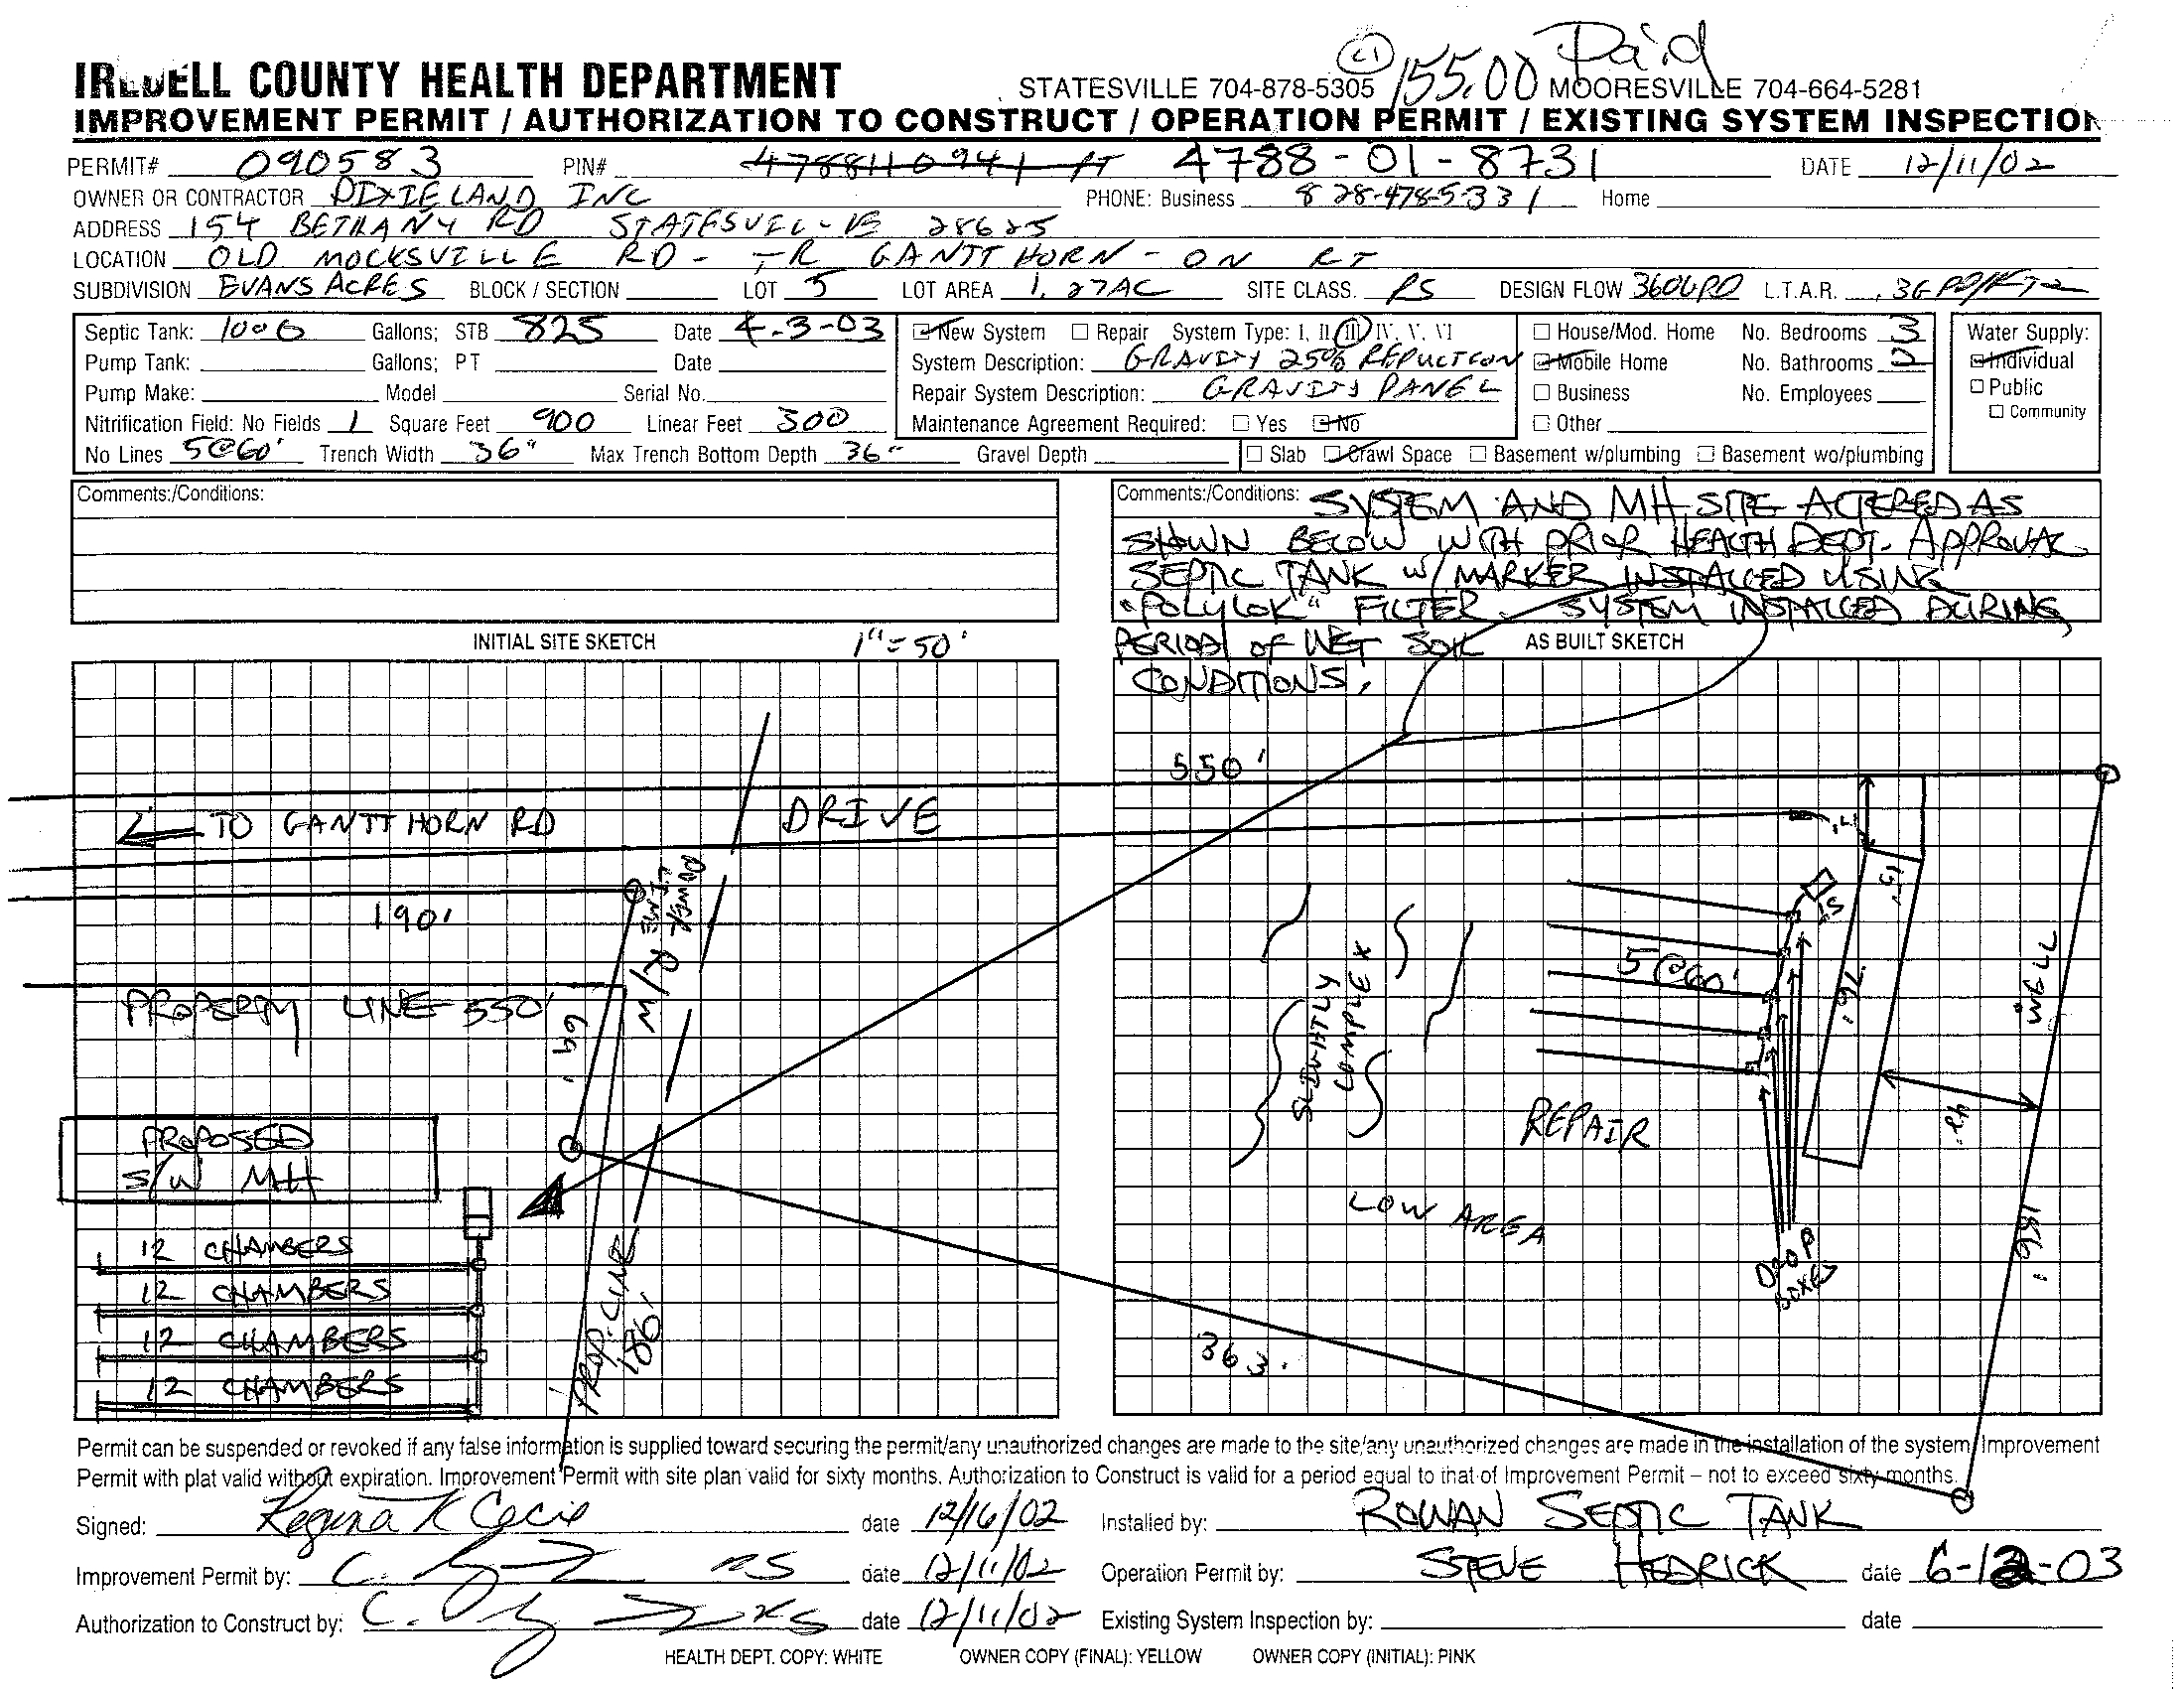 C1 155.00 Paid
IREDELL COUNTY HEALTH DEPARTMENT STATESVILLE 704-878-5305 MOORESVILLE 704-664-5281
IMPROVEMENT PERMIT / AUTHORIZATION TO CONSTRUCT / OPERATION PERMIT / EXISTING SYSTEM INSPECTION
PERMIT# 090583 PIN# 4788-01-8731 DATE 12/11/02
OWNER OR CONTRACTOR DIXIELAND INC PHONE: Business 828-478-5331 Home
ADDRESS 154 BETHANY RD STATESVILLE 28625
LOCATION OLD MOCKSVILLE RD - TR GANTT HORN - ON RT
SUBDIVISION EVANS ACRES BLOCK / SECTION LOT 5 LOT AREA 1.27AC SITE CLASS. PS DESIGN FLOW 360GPD L.T.A.R. .3GPD/FT2
Septic Tank: 1000 Gallons; STB 825 Date 4-3-03 New System Repair System Type: I, II, III, IV, V, VI House/Mod. Home No. Bedrooms 3 Water Supply:
Pump Tank: Gallons; PT Date System Description: GRAVITY 25% REDUCTION Mobile Home No. Bathrooms 2 Individual
Pump Make: Model Serial No. Repair System Description: GRAVITY PANEL Business No. Employees Public
Nitrification Field: No Fields 1 Square Feet 900 Linear Feet 300 Maintenance Agreement Required: Yes No Other Community
No Lines 5@60' Trench Width 36" Max Trench Bottom Depth 36" Gravel Depth Slab Crawl Space Basement w/plumbing Basement wo/plumbing
Comments:/Conditions:
Comments:/Conditions: SYSTEM AND MH SITE ALTERED AS
SHOWN BELOW WITH PRIOR HEALTH DEPT. APPROVAL
SEPTIC TANK w/ MARKER INSTALLED USING
"POLYLOK" FILTER. SYSTEM INSTALLED DURING
PERIOD OF WET SOIL
CONDITIONS.
INITIAL SITE SKETCH 1"=50'
AS BUILT SKETCH
TO GANTT HORN RD
DRIVE
190'
POWER
LINE
R/W
PROPERTY LINE 550'
69'
PROPOSED
S/W MH
12 CHAMBERS
12 CHAMBERS
12 CHAMBERS
12 CHAMBERS
PROP. LINE
186'
550'
15'
ST
5@60'
76'
WELL
SLIGHTLY
COMPLEX
42'
REPAIR
LOW AREA
DROP
BOXES
186'
363'
Permit can be suspended or revoked if any false information is supplied toward securing the permit/any unauthorized changes are made to the site/any unauthorized changes are made in the installation of the system. Improvement
Permit with plat valid without expiration. Improvement Permit with site plan valid for sixty months. Authorization to Construct is valid for a period equal to that of Improvement Permit – not to exceed sixty months.
Signed: Regina K Cecil date 12/16/02 Installed by: ROWAN SEPTIC TANK
Improvement Permit by: C. RS date 12/11/02 Operation Permit by: STEVE HEDRICK date 6-12-03
Authorization to Construct by: C. RS date 12/11/02 Existing System Inspection by: date
HEALTH DEPT. COPY: WHITE OWNER COPY (FINAL): YELLOW OWNER COPY (INITIAL): PINK